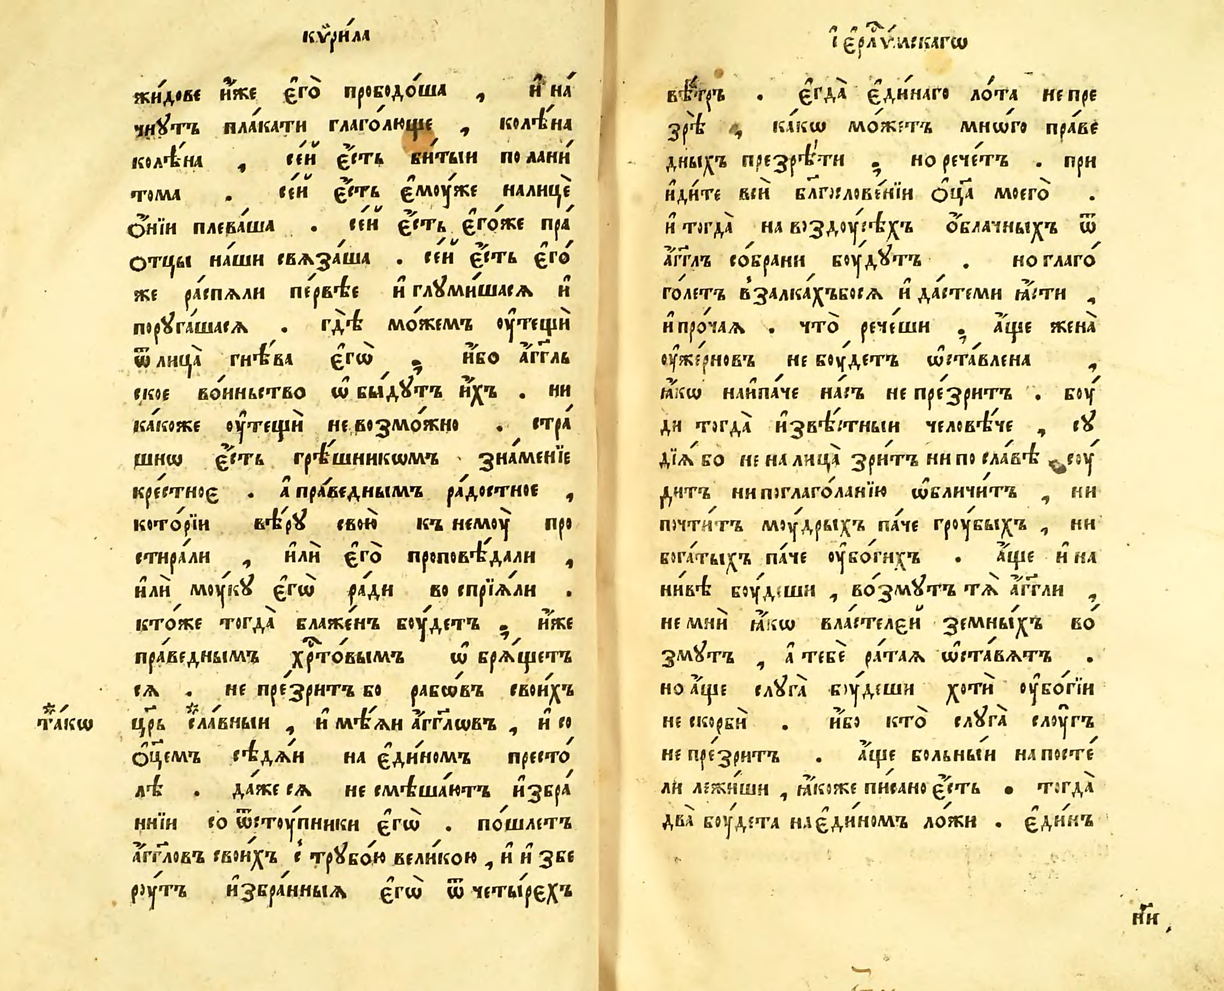 кѷри́ла
жи́дове и҆́же є҆го̀ прободо́ша , и҆ на́
чнꙋтъ пла́кати глаго́люще , колѣ́на
колѣ́на , се́й є҆́сть би́тыи по лані́
тома . се́й є҆́сть є҆моу́же на лицѐ
ѻ҆́нїи плева́ша . се́й є҆́сть є҆го́же пра́
ѻтцы на́ши свѧза́ша . се́й є҆́сть є҆го́
же распѧ́ли пе́рвѣе и҆ глꙋми́шасѧ и҆
порꙋга́шасѧ . гдѣ̀ мо́жемъ оу҆тещѝ
ѿ лица̀ гнѣ́ва є҆гѡ̀ ; и҆́бо а҆́гг҃ль
ское во́иньство ѡ҆бы́дꙋтъ и҆́хъ . ни
ка́коже оу҆тещѝ невозмо́жно . стра́
шно є҆́сть грѣ́шникѡмъ . зна́менїе
кре́стноє . а҆ пра́веднымъ ра́достное ,
кото́рїи вѣ́рꙋ свою̀ къ немоу̀ про
стира́ли , и҆лѝ є҆го̀ проповѣ́дали ,
и҆лѝ моу́кꙋ є҆гѡ̀ ра́ди во спрїѧ́ли .
кто́же тогда̀ блаже́нъ боу́детъ ; и҆́же
пра́веднымъ хрⷭ҇то́вымъ ѡ҆брѧ́щетъ
сѧ . не пре́зритъ бо рабѡ́въ свои́хъ
та́кѡ
цр҃ь сла́вныи , и҆ мѣ́ѧи а҆́гг҃лѡвъ , и҆ со
ѻ҆ц҃е́мъ сѣдѧ́и на є҆ди́номъ престо́
лѣ . да́же сѧ не смѣша́ютъ и҆збра́
ннїи со ѿстоу́пники є҆гѡ̀ . по́шлетъ
а҆́гг҃ловъ свои́хъ с̾ трꙋбо́ю вели́кою , и҆ и҆збе
роу́тъ и҆збра́нныѧ є҆гѡ̀ ѿ четы́рєхъ
і҆єрⷭ҇ли́мскагѡ
вѣ́тръ . є҆гда̀ є҆ди́наго ло́та не пре
зрѣ̀ , ка́кѡ мо́жетъ мно́го пра́ве
дныхъ презрѣ́ти ; но рече́тъ . при
и҆ди́те всѝ блгⷭ҇ослове́нїи ѻ҆ц҃а̀ моего̀ .
и҆ тогда̀ на воздоу́сѣхъ ѻ҆́блачныхъ ѿ
а҆́гг҃лъ со́брани боу́дꙋтъ . но глаго́
голетъ в̾залка́хъбосѧ и҆ да́стеми ꙗ҆́сти ,
и҆ про́чаѧ . что̀ рече́ши ; а҆́ще жена̀
оу҆же́рновъ не боу́детъ ѡ҆ста́влена ,
ꙗ҆́кѡ наипа́че на́съ не пре́зритъ . боу́
ди тогда̀ и҆звѣ́стныи человѣ́че , сꙋ
дїѧ̀ бо не на лица̀ зри́тъ ни по сла́вѣ соу́
дитъ ни поглаго́ланїю ѡ҆бличи́тъ , ни
почти́тъ моу́дрыхъ па́че гроу́быхъ , ни
бога́тыхъ па́че оу҆бо́гихъ . а҆́ще и҆ на
ни́вѣ боу́деши , во́змꙋтъ тѧ̀ а҆́гг҃ли ,
не мнѝ ꙗ҆́кѡ власте́лєй зе́мныхъ во́
змꙋтъ , а҆ тебѐ ра́таѧ ѡ҆ста́вѧтъ .
но а҆́ще слꙋга̀ боу́деши хотѝ оу҆бо́гїи
не скорбѝ . и҆́бо кто̀ слꙋга̀ слоу́гъ
не пре́зритъ . а҆́ще больны́и на посте́
ли лежи́ши , ꙗ҆́коже пи́сано є҆́сть . тогда̀
два̀ боу́дета на є҆ди́номъ ло́жи . є҆ди́нъ